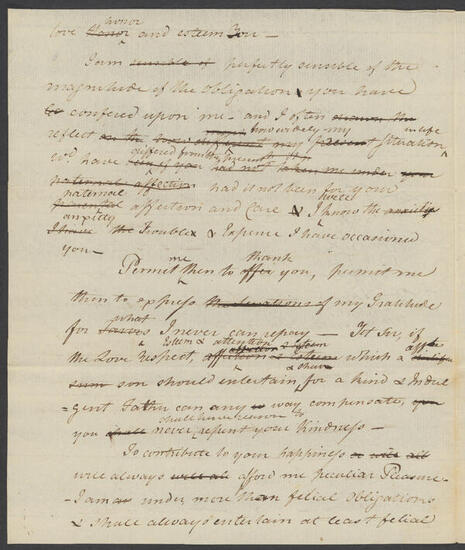 love Honor honor and esteem You —
I am sensible of perfectly sensible of the
magnitude of the obligation you have
confered upon me — and I often
reflect how widely my situation in life
wd have differed from the present
paternal affection had it not been for your
paternal parental affection and care & I well know the
anxiety I have the Trouble & Expense I have occasioned
you —
Permit me then to offer thank you, permit me
then to express the of my Gratitude
for what favors I never can repay — Yet Sir, if
the Love Respect, Esteem & attention which a
son should entertain & shew for a kind & Indul
=gent Father can any way compensate, you
you shall shall have reason to never repent your Kindness —
To contribute to your happiness
will always afford me peculiar Pleasure —
- I am under more than felial obligations
& shall always entertain at least felial